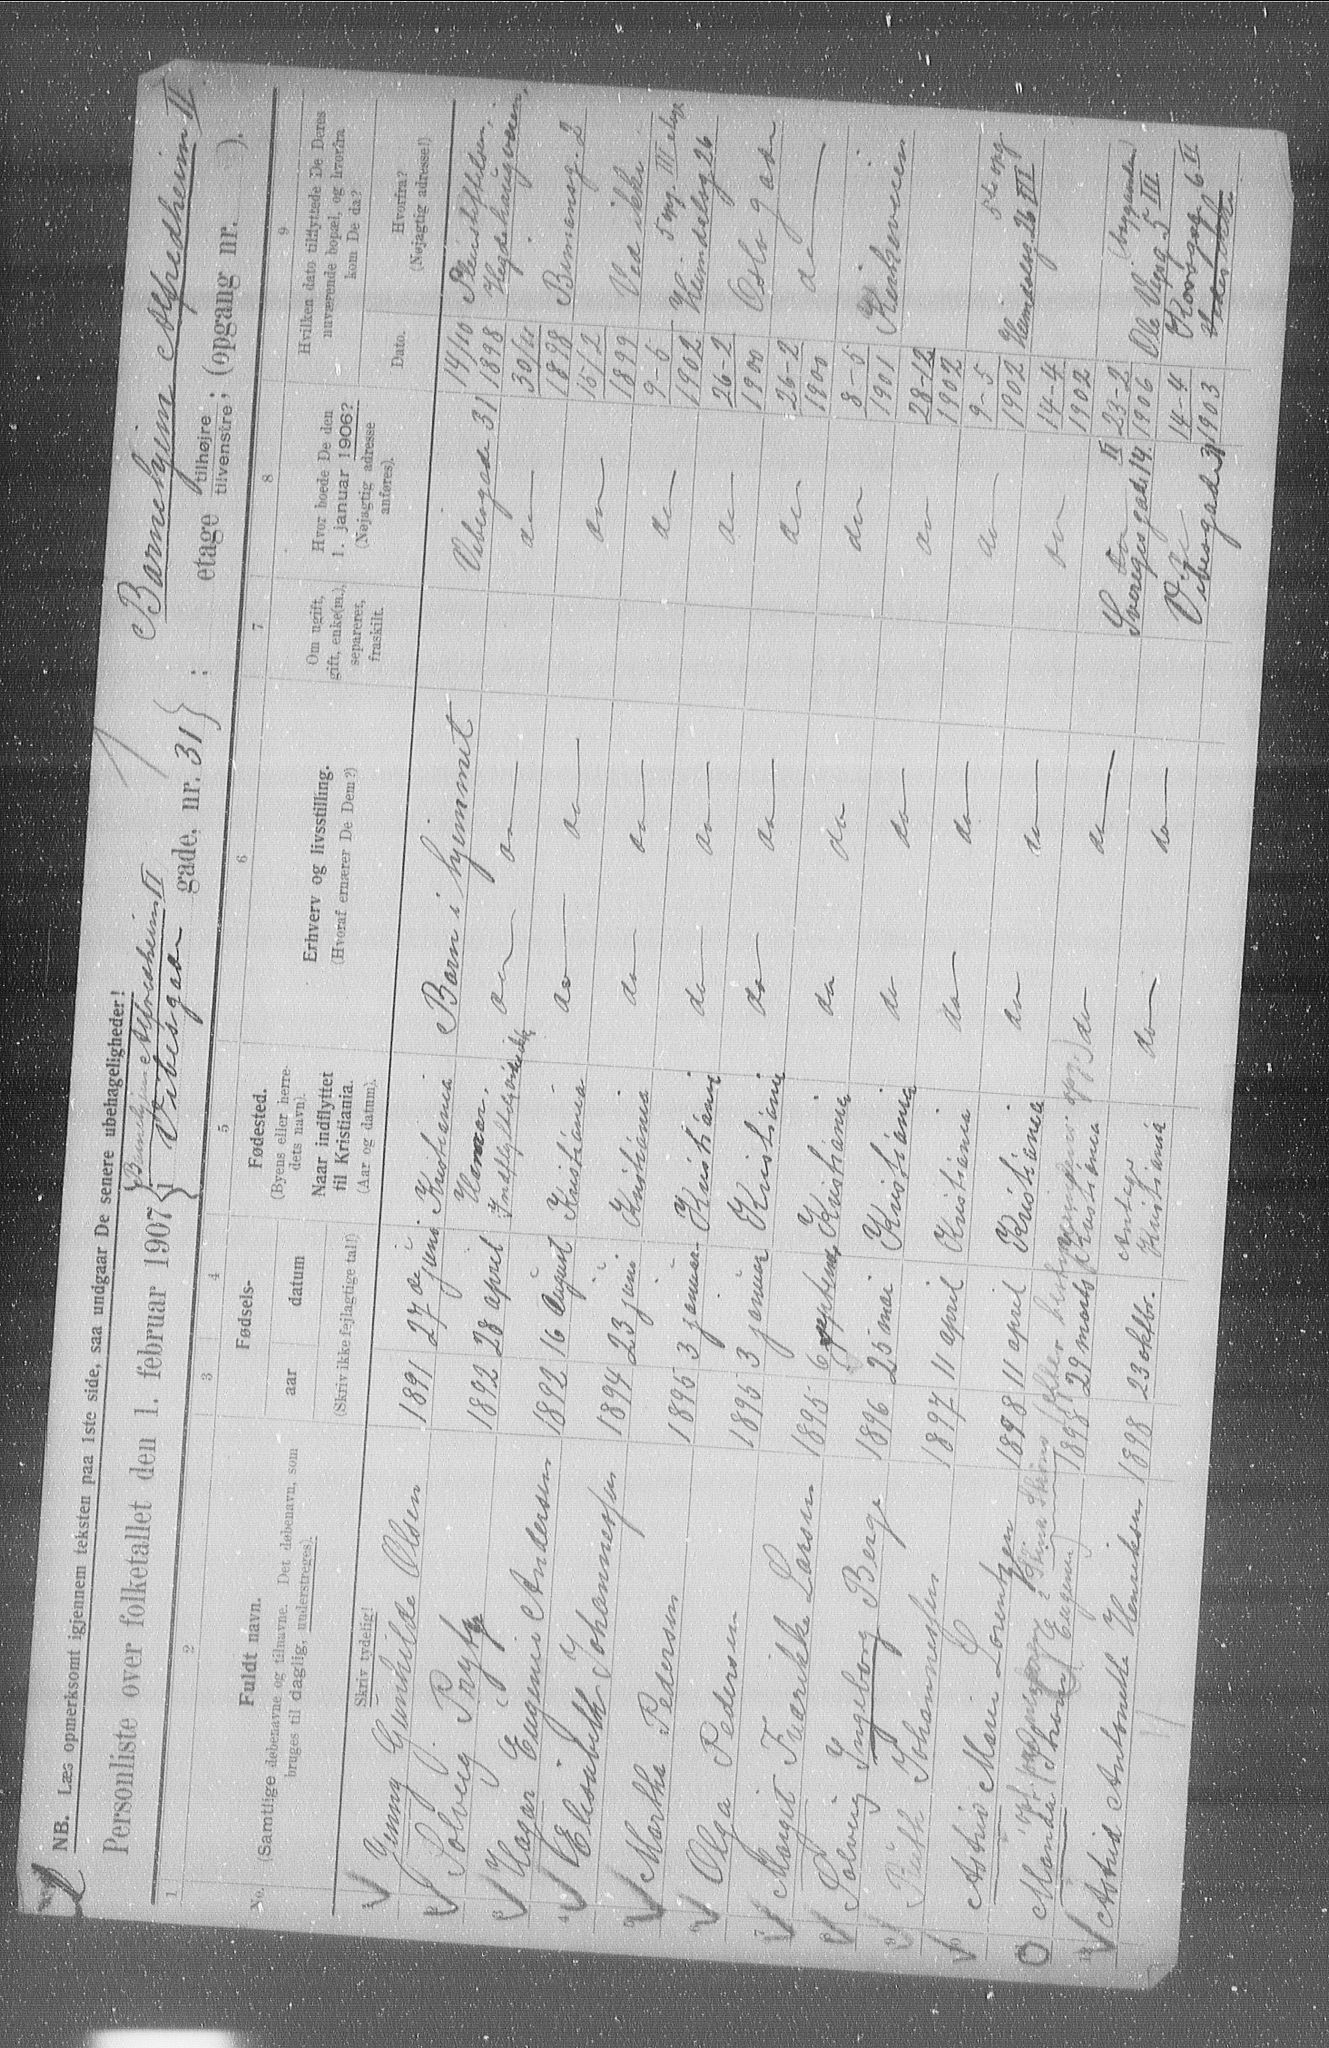 NB. Læs opmerksomt igjennem teksten paa 1ste side, saa undgaar De senere ubehageligheder!
Personliste over folketallet den 1. februar 1907 i
Barnehjem Alfredheim II
Vibesgade gade, nr. 31;
Barnehjem Alfredheim II
etage tilhøjre tilvenstre; (opgang nr. ).
1
2
3
4
5
6
7
8
9
No.
Fuldt navn.
(Samtlige døbenavne og tilnavne. Det døbenavn, som
bruges til daglig, understreges).
Skriv tydelig!
Fødsels-
aar
datum
(Skriv ikke fejlagtige tal!)
Fødested.
(Byens eller herre-
dets navn).
Naar indflyttet
til Kristiania.
(Aar og datum).
Erhverv og livsstilling.
(Hvoraf ernærer De Dem?)
Om ugift,
gift, enke(m.),
separeret,
fraskilt.
Hvor boede De den
1. januar 1906?
(Nøjagtig adresse
anføres).
Hvilken dato tilflyttede De Deres
nuværende bopæl, og hvorfra
kom De da?
Dato.
Hvorfra?
(Nøjagtig adresse!)
Jenny Gunhilde Olsen 1891 27 de juni Kristiania Barn i hjemmet Vibesgade 31 14/10 1898
Solveig 1892 28 april Hamar. do do do 30/11 1898 Hegdehaugveien,
Hagar Eugenie Andersen 1892 16 August Kristiania do do do 15/2 1899
Elisabeth Johannessen 1894 23 juni Kristiania do do do 9-5 1902 Ved ikke
Martha Pedersen 1895 3 januar Kristiania do do do 26-2 1900 5 opg. III
Olga Pedersen 1895 3 januar Kristiania do do do 26-2 1900 Oslo gaden
Margit Fredrikke Larsen 1895 6 septemb. Kristiania do do do 8-5 1901 do
Solveig Ingeborg Berge 1896 25 mai Kristiania do do do 28-12 1902 Kirkeveien
Ruth Johannessen 1897 11 april Kristiania do do do 9-5 1902
Astrid Marie Lorentzen 1898 11 april Kristiania do do do 14-4 1902 Heimdalsg. 26 III
Manda (Thora Eugenie) 1898 29 marts Kristiania do do Sveregesgade 14. II 23-2 1906 Ole Vigsg 5 III
Astrid Antonette Henriksen 1898 23 oktbr. Kristiania do do Vibesgade 31 14-4 1903